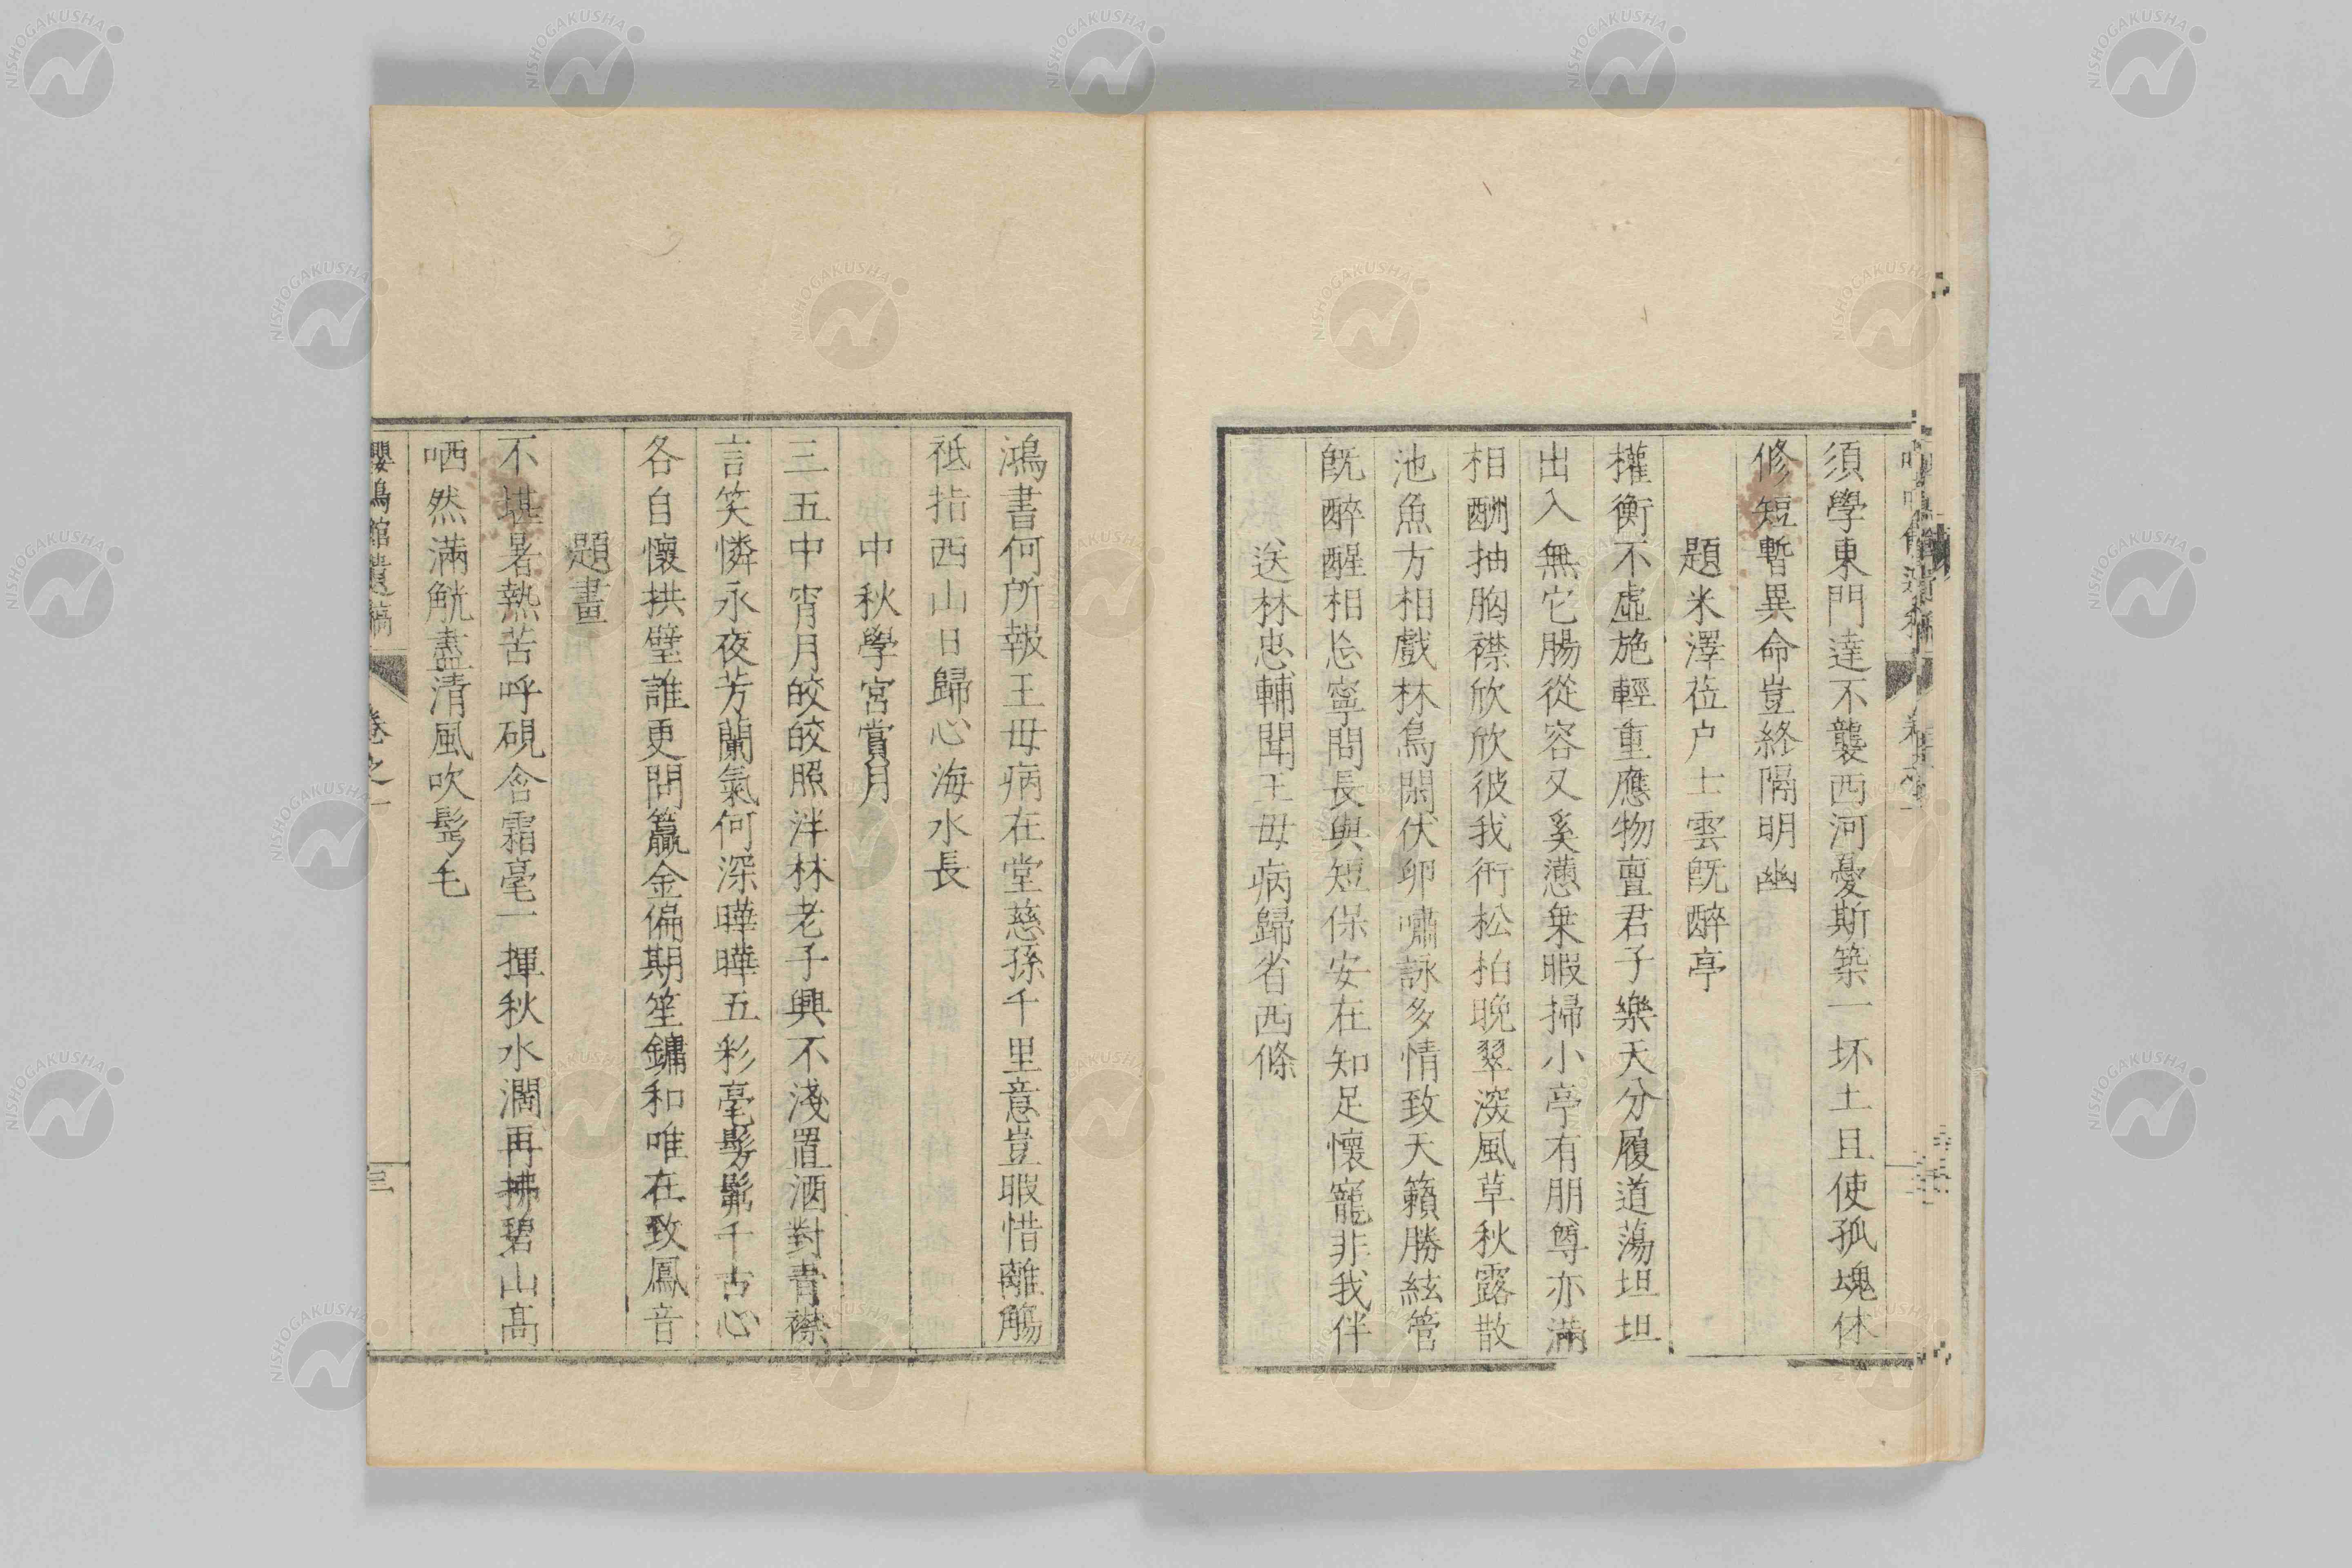 須學東門達不襲西河憂斯築一坏土且使孤魂休
修短暫異命豈終隔明幽
題米澤莅戸士雲既醉亭
權衡不虛施輕重應物亶君子樂天分履道蕩坦坦
出入無它腸從容又奚懣乗暇掃小亭有朋尊亦滿
相酬抽胸襟欣欣彼我衎松柏晩翠深風草秋露散
池魚方相戲林鳥閑伏卵嘯詠多情致天籟勝絃管
既醉醒相忘寧問長與短保安在知足懷寵非我伴
送林忠輔聞王母病歸省西條
鴻書何所報王母病在堂慈孫千里意豈暇惜離觴
祗指西山日歸心海水長
中秋學宮賞月
三五中宵月皎皎照泮林老子興不淺置酒對青襟
言笑憐永夜芳蘭氣何深曄曄五彩毫髣髴千古心
各自懷拱璧誰更問籯金偏期笙鏞和唯在致鳳音
題畫
不堪暑熱苦呼硯含霜毫一揮秋水濶再拂碧山髙
哂然滿觥盡清風吹髩毛
嚶鳴館遺稿 卷之一 三
NISHOGAKUSHA